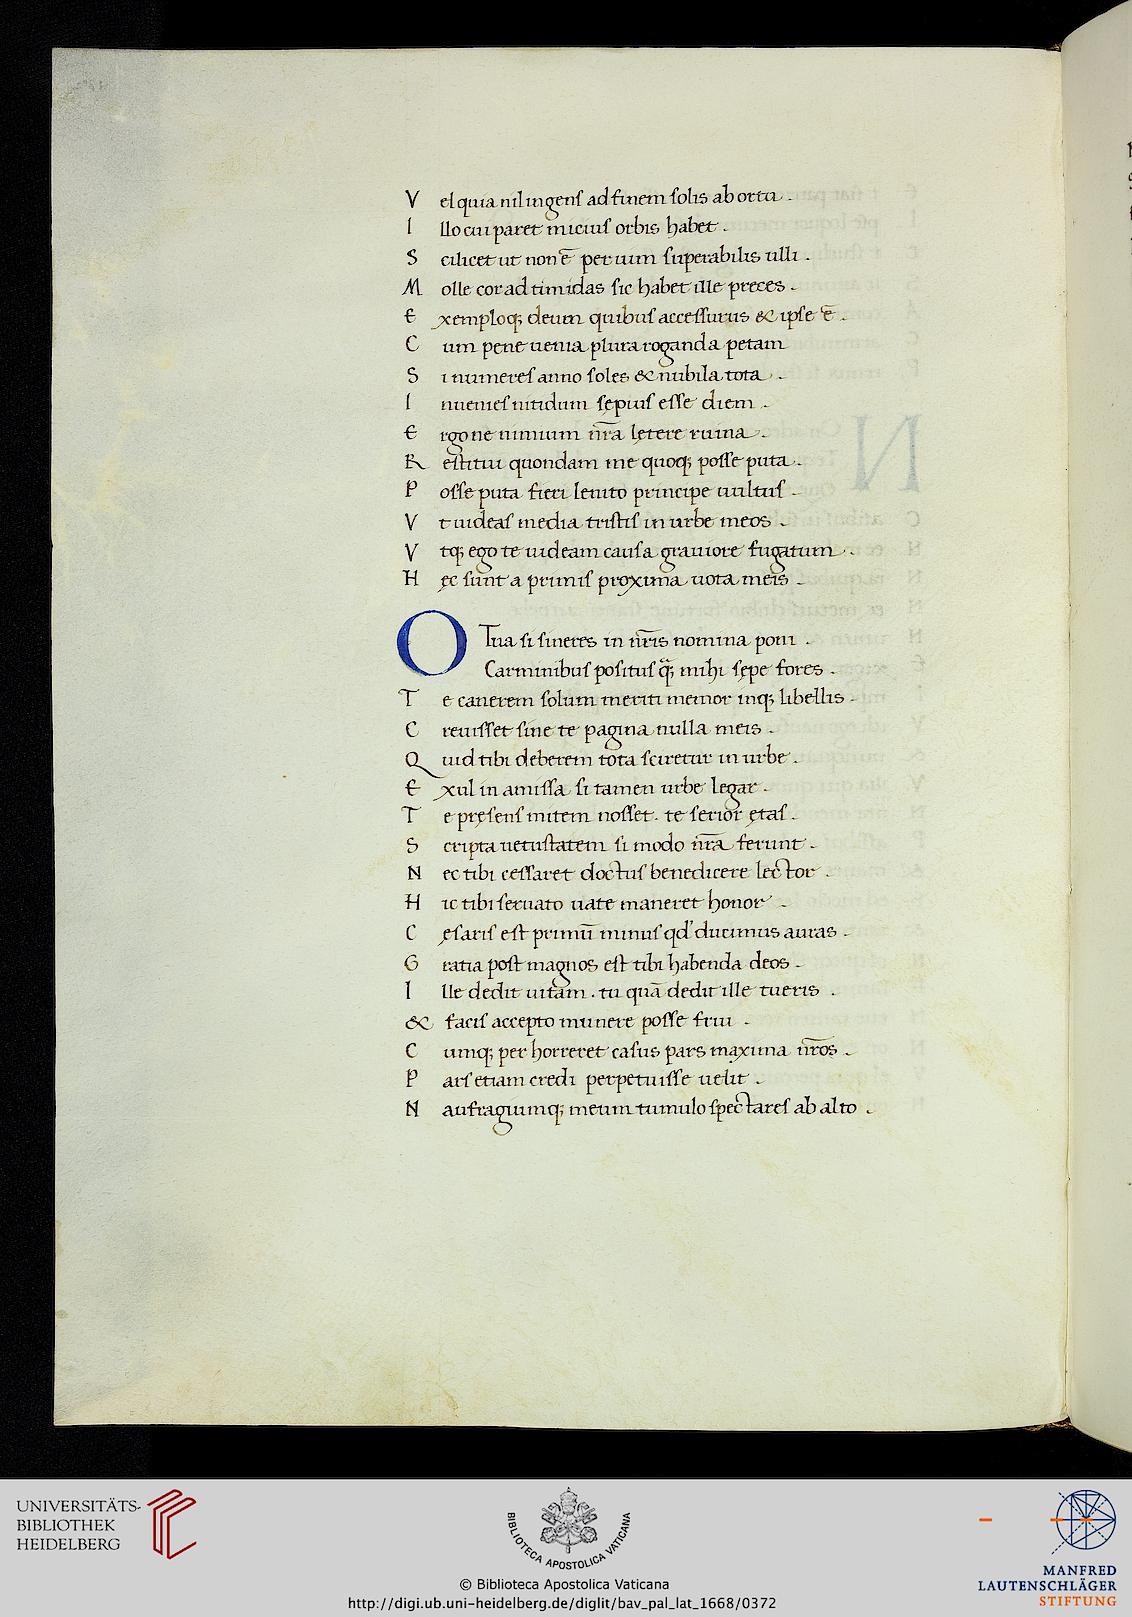 Vel quia nil ingens ad finem solis ab ortu .
Illo cui paret micius orbis habet .
Scilicet ut non ē per uim superabilis ulli .
Molle cor ad timidas sic habet ille preces .
Exemploq; deum quibus accessurus & ipse ē .
Cum pene uenia plura roganda petam
Si numeres anno soles & nubila tota .
Inuenies nitidum sępius esse diem .
Ergo ne nimium nr̄a lętere ruina .
Restitui quondam me quoq; posse puta .
Posse puta fieri lenito principe uultus .
Vt uideas media tristis in urbe meos .
Vtq; ego te uideam causa grauiore fugatum .
Hęc sunt a primis proxima uota meis .
O Tua si sineres in nr̄is nomina poni .
Carminibus positus q̄ mihi sępe fores .
Te canerem solum meriti memor inq; libellis .
Creuisset sine te pagina nulla meis .
Quid tibi deberem tota sciretur in urbe .
Exul in amissa si tamen urbe legar .
Te pręsens mitem nosset . te serior ętas .
Scripta uetustatem si modo nr̄a ferunt .
Nec tibi cessaret doctus benedicere lector .
Hic tibi seruato uate maneret honor .
Cęsaris est primū munus qd' ducimus auras .
Gratia post magnos est tibi habenda deos .
Ille dedit uitam . tu quā dedit ille tueris .
& facis accepto munere posse frui .
Cumq; per horreret casus pars maxima nr̄os .
Pars etiam credi perpetuisse uelit .
Naufragiumq; meum tumulo spectares ab alto .
UNIVERSITÄTS-
BIBLIOTHEK
HEIDELBERG
BIBLIOTECA APOSTOLICA VATICANA
© Biblioteca Apostolica Vaticana
http://digi.ub.uni-heidelberg.de/diglit/bav_pal_lat_1668/0372
MANFRED
LAUTENSCHLÄGER
STIFTUNG